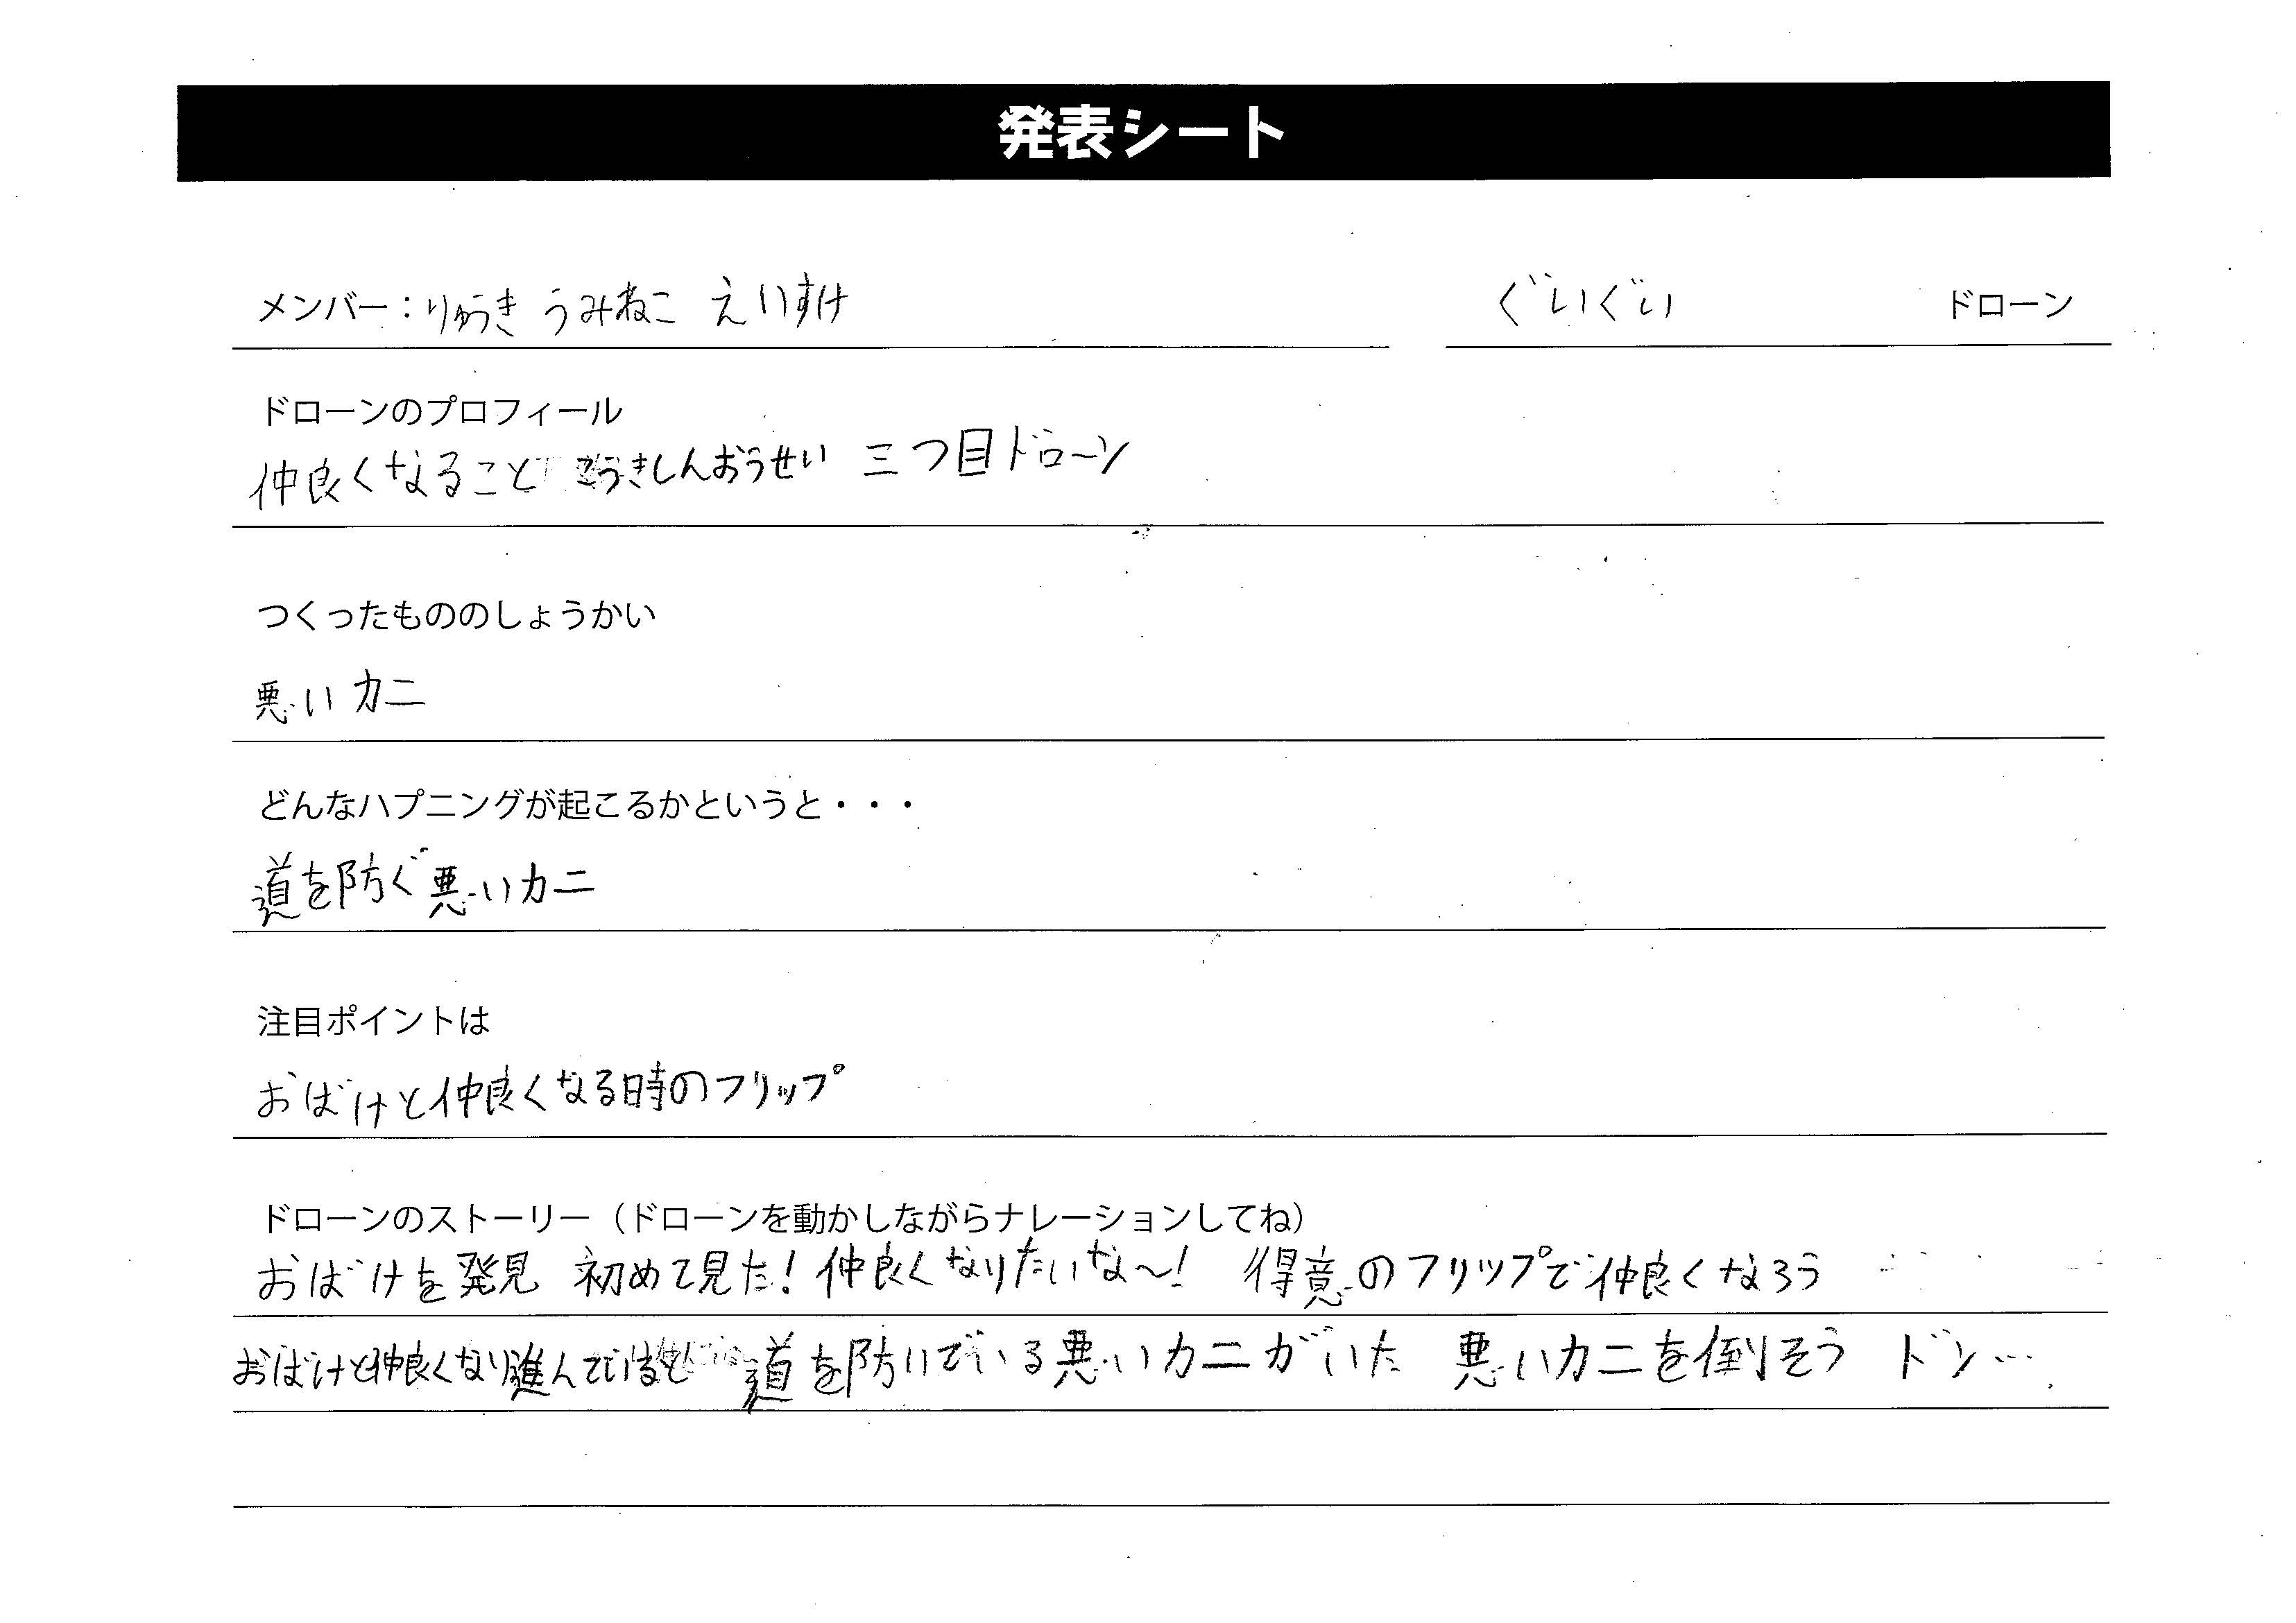 発表シート
メンバー：りゅうき うみねこ えいすけ ぐいぐい ドローン
ドローンのプロフィール
仲良くなること こうきしんおうせい 三つ目ドローン
つくったもののしょうかい
悪いカニ
どんなハプニングが起こるかというと・・・
道を防ぐ悪いカニ
注目ポイントは
おばけと仲良くなる時のフリップ
ドローンのストーリー（ドローンを動かしながらナレーションしてね）
おばけを発見 初めて見た！仲良くなりたいな〜！ 得意のフリップで仲良くなろう
おばけと仲良くなり進んでいると 道を防いでいる悪いカニがいた 悪いカニを倒そう ドン…